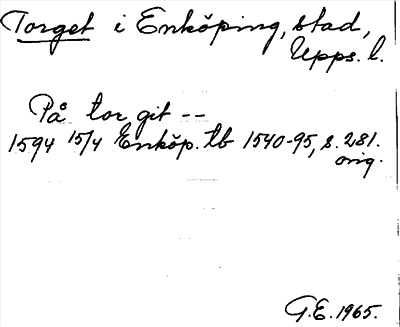 Torget i Enköping, stad,
Upps. l.
På tor git --
1594 15/4 Enköp. tb 1540-95, s. 281.
orig.
G.E. 1965.